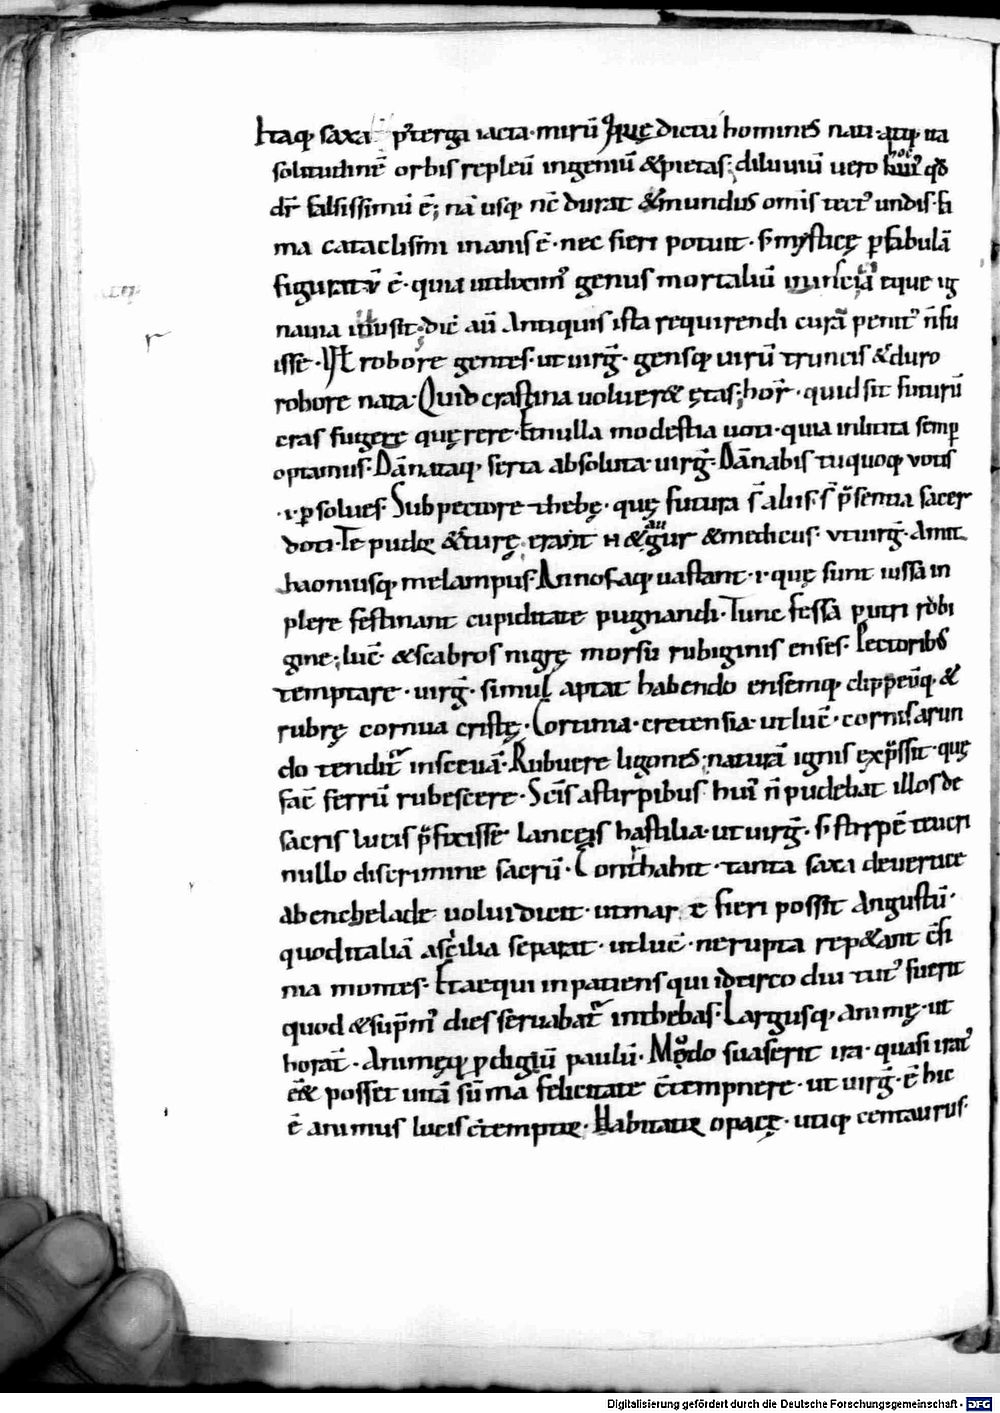 Itaq; saxa p̄terga iacta· mirū quę dictu homines nati· atq; ita
solitudinē orbis repleū ingeniū &pietas; diluuiū uero hui' qđ
dr̄ falsissimū ē; nā usq; nc̄ durat &mundus om̄is tect' undis· fa
ma cataclismi inanis ē· nec fieri potuit· s; mysticę p fabulā
figuratū ē· quia genus mortaliū
dic̄ aū Antiquis ista requirendi curā penit' n̄ fu
isse· robore gentes· ut uirḡ· gensq; uirū truncis &duro
robore nata· Quid crastina uoluer& ętas; hor̄· quid sit futurū
cras fugere quęrere· Et nulla modestia uoti· quia inlicita semp
optamus· Dānataq; serta absoluta· uirḡ· Dānabis tu quoq; votis
·i· p solues· Sub pectore thebę· quę futura s̄ aliis· s̄ p̄sentia sacer
doti· Te pud& & medicus· vt uirḡ· Amit
haoniusq; melampus· Annos aq; uastant· ·i· quę sunt iussa in
plere festinant cupiditate pugnandi· Tunc fessa putri robi
gine; luc̄· &scabros nigrę morsu rubiginis enses· Pectorib;
temptare· uirḡ· simul aptat habendo ensemq; clippeūq; &
rubrę cornua cristę· Cortina· cretensia· ut luc̄· cornis arun
do tendit̄ in sceuā· Rubuere ligones; naturā ignis exp̄ssit· quę
fac̄ ferrū rubescere· Scīs a stirpibus hui' n̄ pudebat illos de
sacris lucis p̄fixisse lanceis hastilia· ut uirḡ· s; stirpē teucri
nullo discrimine sacrū· Contrahit· tanta saxa deuertice
ab enchelade uolui dicit· ut mare fieri possit Angustū·
quod italiā a sicilia separat· ut luc̄· ne rupta rep&ant c̄fi
nia montes· Et aequi inpatiens qui idcirco diu tut' fuerit
quod &sup̄m' dies seruabat̄ in thebas· Largusq; animę· ut
horat̄· Animęq; p digiū paulū· Modo suaserit ira· quasi irat'
ēē& posset uitā sūma felicitate c̄tempnere· ut uirḡ· ē hic
ē animus lucis c̄temptor· Habitator opacę· utiq; centaurus·
Digitalisierung gefördert durch die Deutsche Forschungsgemeinschaft - DFG